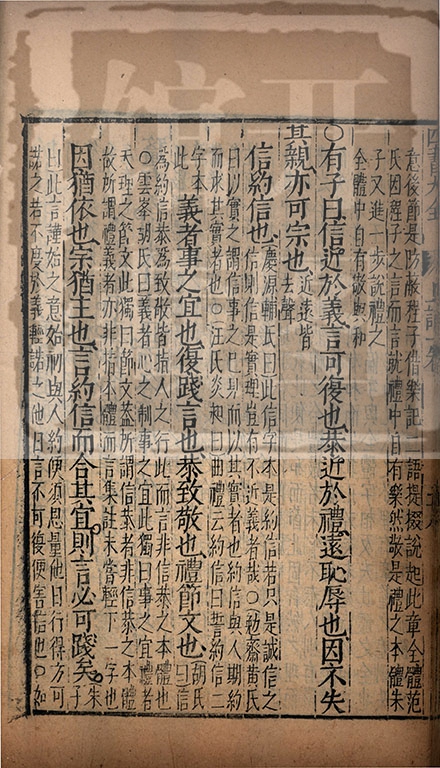 意後節是防蔽程子借樂記二語提掇說起此章全體范
氏因程子之言而言就禮中自有樂然敬是禮之本體朱
子又進一步說禮之
全體中自有敬與和
○有子曰信近於義言可復也恭近於禮遠恥辱也因不失
其親亦可宗也近遠皆去聲
信約信也慶源輔氏曰此信字本是約信若只是誠信之
信則信是實理豈有不近義者哉○勉齋黃氏
曰以實之謂信事之已見而以其實者也約信與人期約
而求其實者也○汪氏炎昶曰曲禮云約信曰誓約信二
字本此義者事之宜也復踐言也恭致敬也禮節文也胡氏曰信
為約信恭為致敬皆指人之行此而言非信恭之本體也
○雲峯胡氏曰義者心之制事之宜此獨曰事之宜禮者
天理之節文此獨曰節文蓋所謂信恭者非信恭之本體
故所謂禮義者亦非禮義本體而言集註未嘗輕下一字也
因猶依也宗猶主也言約信而合其宜則言必可踐矣朱子
曰此言謹始之意始初與人約便須思量他日行得方可
諾之若不度於義輕諾之他日言不可復便害信也○如